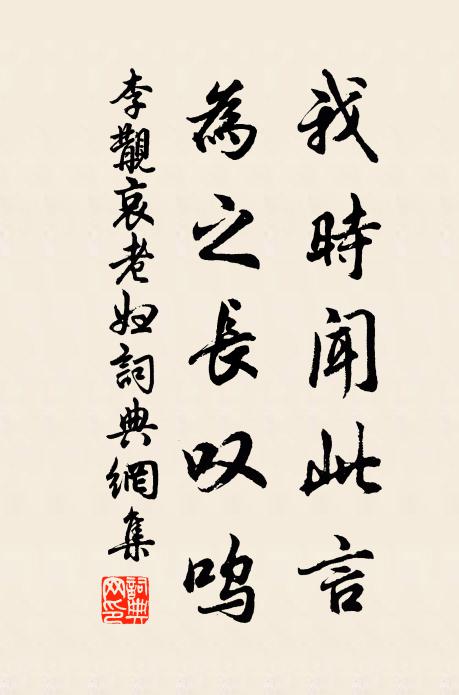 我時聞此言
為之長叹呜
李覯哀老妇詞典網集
詞典网印